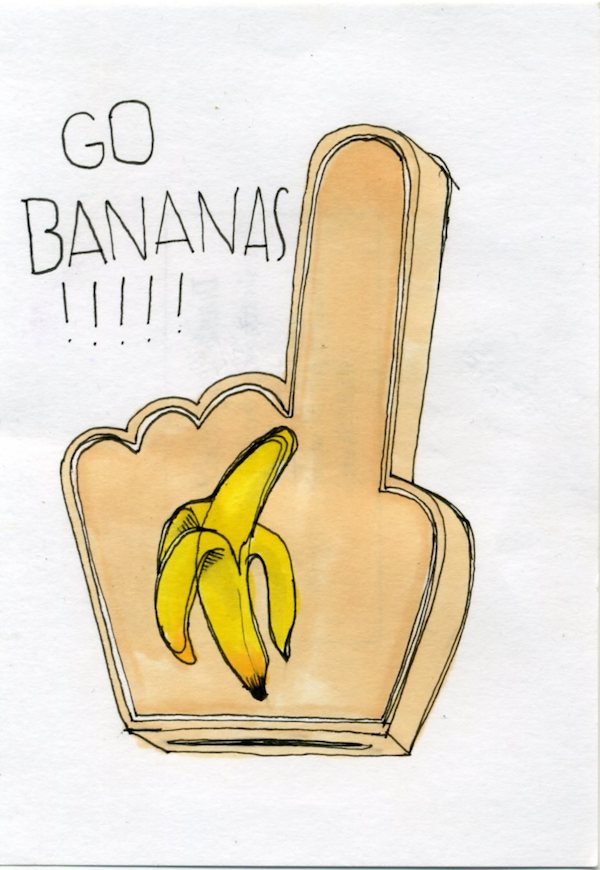 GO
BANANAS
!!!!!